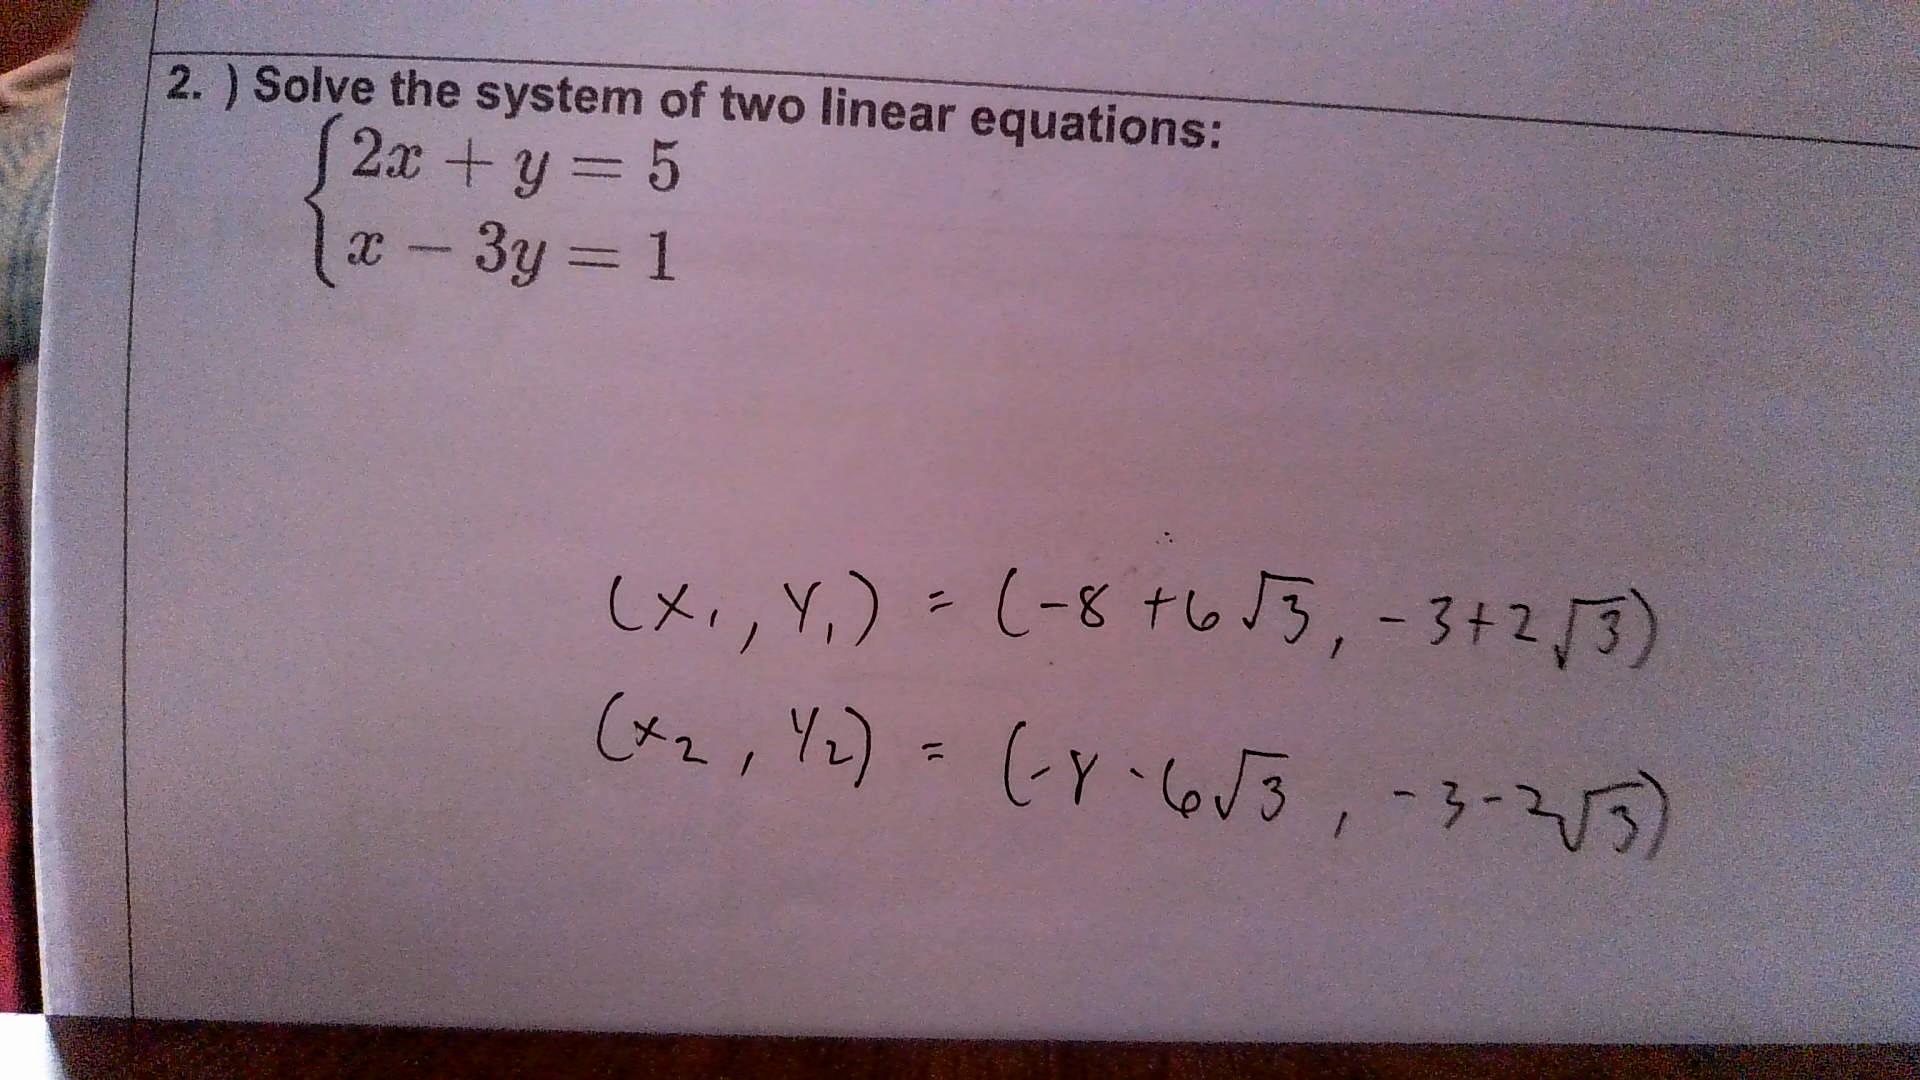 2. ) Solve the system of two linear equations:
2x + y = 5
x − 3y = 1
(x₁, y₁) = (-8 + 6√3, -3+2√3)
(x₂, y₂) = (-8 - 6√3, -3-2√3)